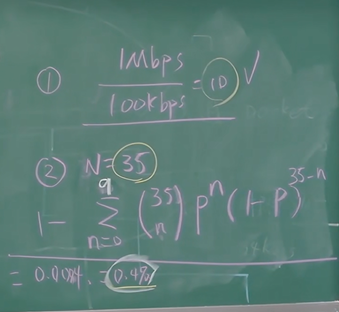 ① 1Mbps / 100kbps = 10 ✓
② N = 35
1 - 9 ∑ n=0 (35 n) p^n (1-P)^35-n
= 0.0004. = 0.4%